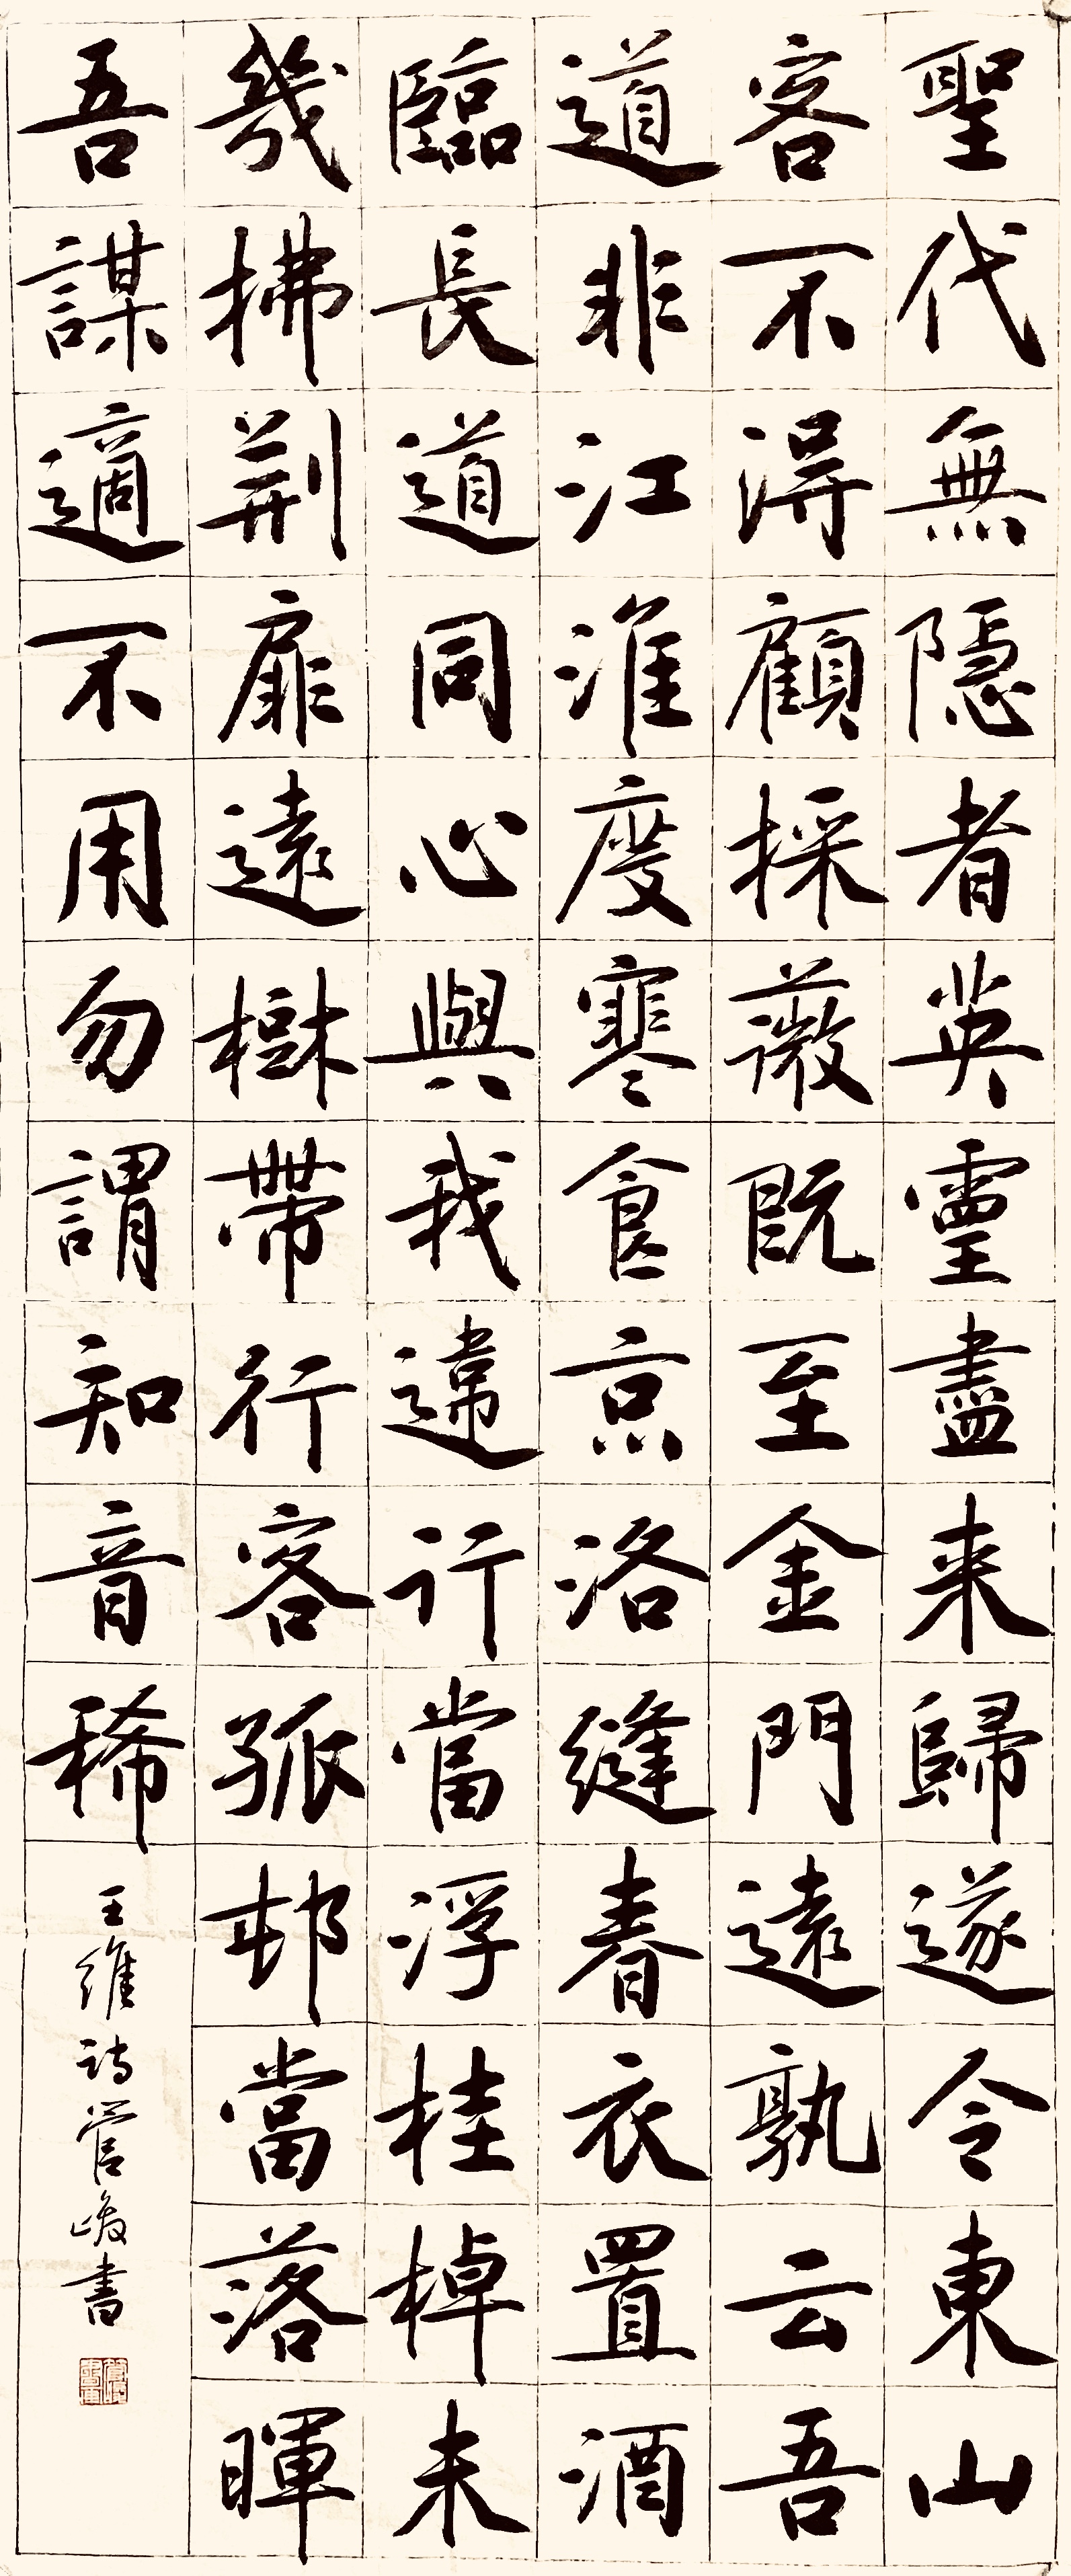 聖代無隱者英靈盡来歸遂令東山
客不得顧採薇既至金門遠孰云吾
道非江淮度寒食京洛縫春衣置酒
臨長道同心與我違行當浮桂棹未
幾拂荆扉遠樹帶行客孤邨當落暉
吾謀適不用勿謂知音稀
王維詩管峻書